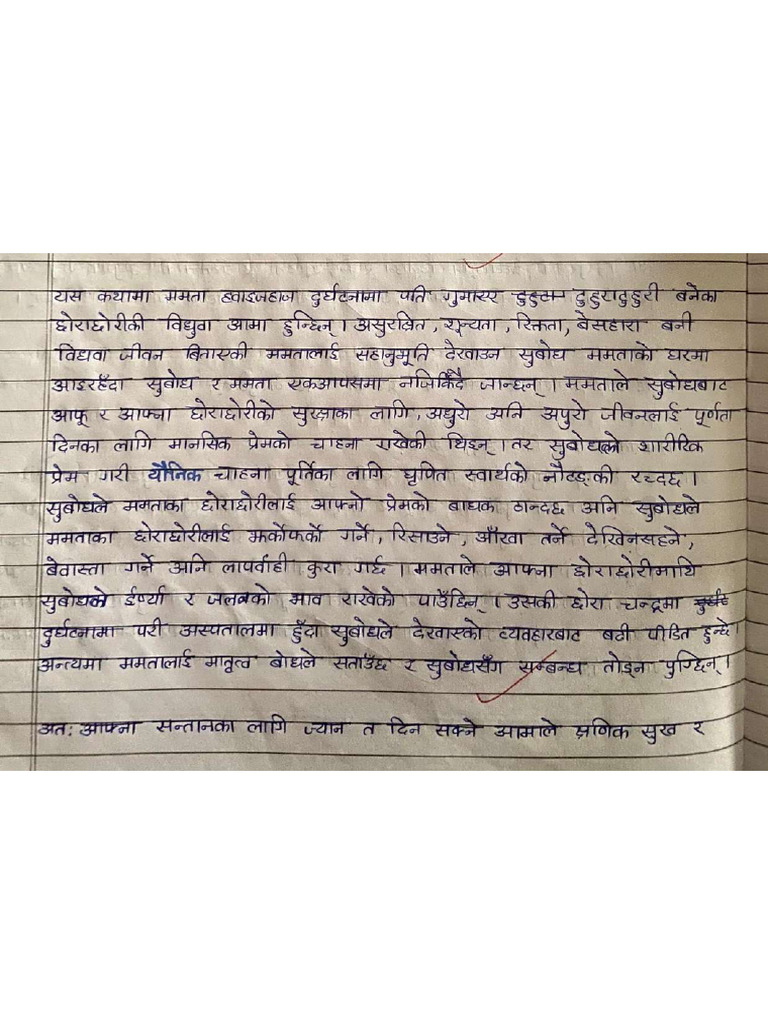 यस कथामा ममता हवाइजहाज दुर्घटनामा पति गुमाएर टुहुराटुहुरी बनेका
छोराछोरीकी विधुवा आमा हुन्छिन् । असुरक्षित, शून्यता, रिक्तता, बेसहारा बनी
विधवा जीवन बिताएकी ममतालाई सहानुभूति देखाउन सुबोध ममताको घरमा
आइरहँदा सुबोध र ममता एकआपसमा नजिकिँदै जान्छन् । ममताले सुबोधबाट
आफू र आफ्ना छोराछोरीको सुरक्षाका लागि, अधुरो अनि अपुरो जीवनलाई पूर्णता
दिनका लागि मानसिक प्रेमको चाहना राखेकी थिइन् । तर सुबोधले शारीरिक
प्रेम गरी यौनिक चाहना पूर्तिका लागि घृणित स्वार्थको नौटङ्की रच्दछ ।
सुबोधले ममताका छोराछोरीलाई आफ्नो प्रेमको बाधक ठान्दछ अनि सुबोधले
ममताका छोराछोरीलाई झर्कोफर्को गर्ने, रिसाउने, आँखा तर्ने देखिनसहने,
बेवास्ता गर्ने अनि लापर्वाही कुरा गर्छ । ममताले आफ्ना छोराछोरीमाथि
सुबोधले ईर्ष्या र जलनको भाव राखेको पाउँछिन् । उसकी छोरा चन्द्रमा
दुर्घटनामा परी अस्पतालमा हुँदा सुबोधले देखाएको व्यवहारबाट बढी पीडित हुन्छे।
अन्त्यमा ममतालाई मातृत्व बोधले सताउँछ र सुबोधसँग सम्बन्ध तोड्न पुग्छिन् ।
अतः आफ्ना सन्तानका लागि ज्यान त दिन सक्ने आमाले क्षणिक सुख र